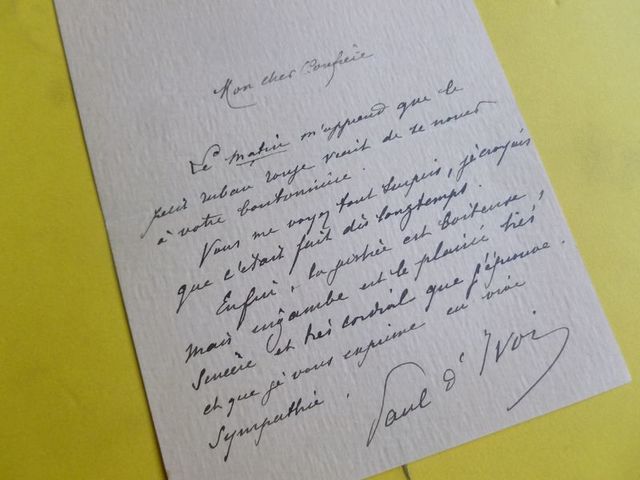 Mon cher Confrère
Le Matin m'apprend que le
petit ruban rouge vient de se nouer
à votre boutonnière.
Vous me voyez tout surpris, je croyais
que c'était fait dès longtemps.
Enfin, la justice est boiteuse,
mais ingambe est le plaisir très
sincère et très cordial que j'éprouve.
et que je vous exprime en vive
sympathie.
Paul d'Ivoi